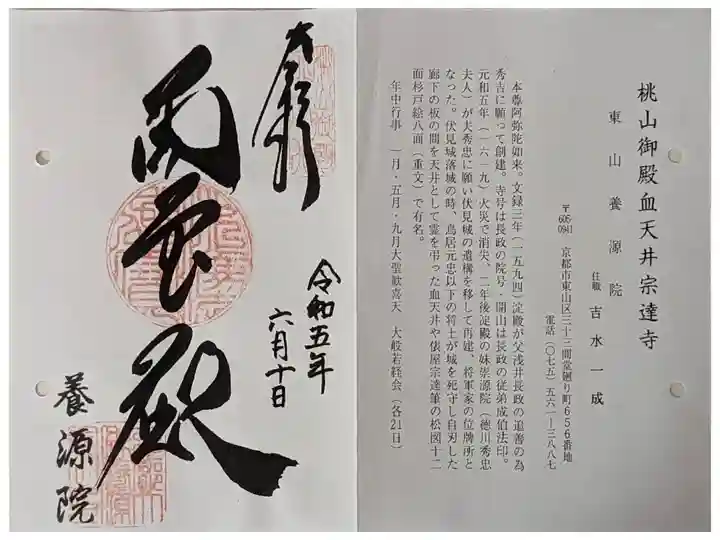 奉拝
令和五年
六月十日
養源院
桃山御殿血天井宗達寺
東山養源院
住職 吉水一成
〒605-0941 京都市東山区三十三間堂廻り町656番地
電話(〇七五)五六一ー三八八七
本尊阿弥陀如来。文録三年(一五九四)淀殿が父浅井長政の追善の為
秀吉に願って創建。寺号は長政の院号・開山は長政の従弟成伯法印。
元和五年(一六一九)火災で消失、二年後淀殿の妹崇源院(徳川秀忠
夫人)が夫秀忠に願い伏見城の遺構を移して再建、将軍家の位牌所と
なった。伏見城落城の時、鳥居元忠以下の将士が城を死守し自刃した
廊下の板の間を天井として霊を弔った血天井や俵屋宗達筆の松図十二
面杉戸絵八面(重文)で有名。
年中行事 一月・五月・九月大聖歓喜天 大般若経会(各21日)